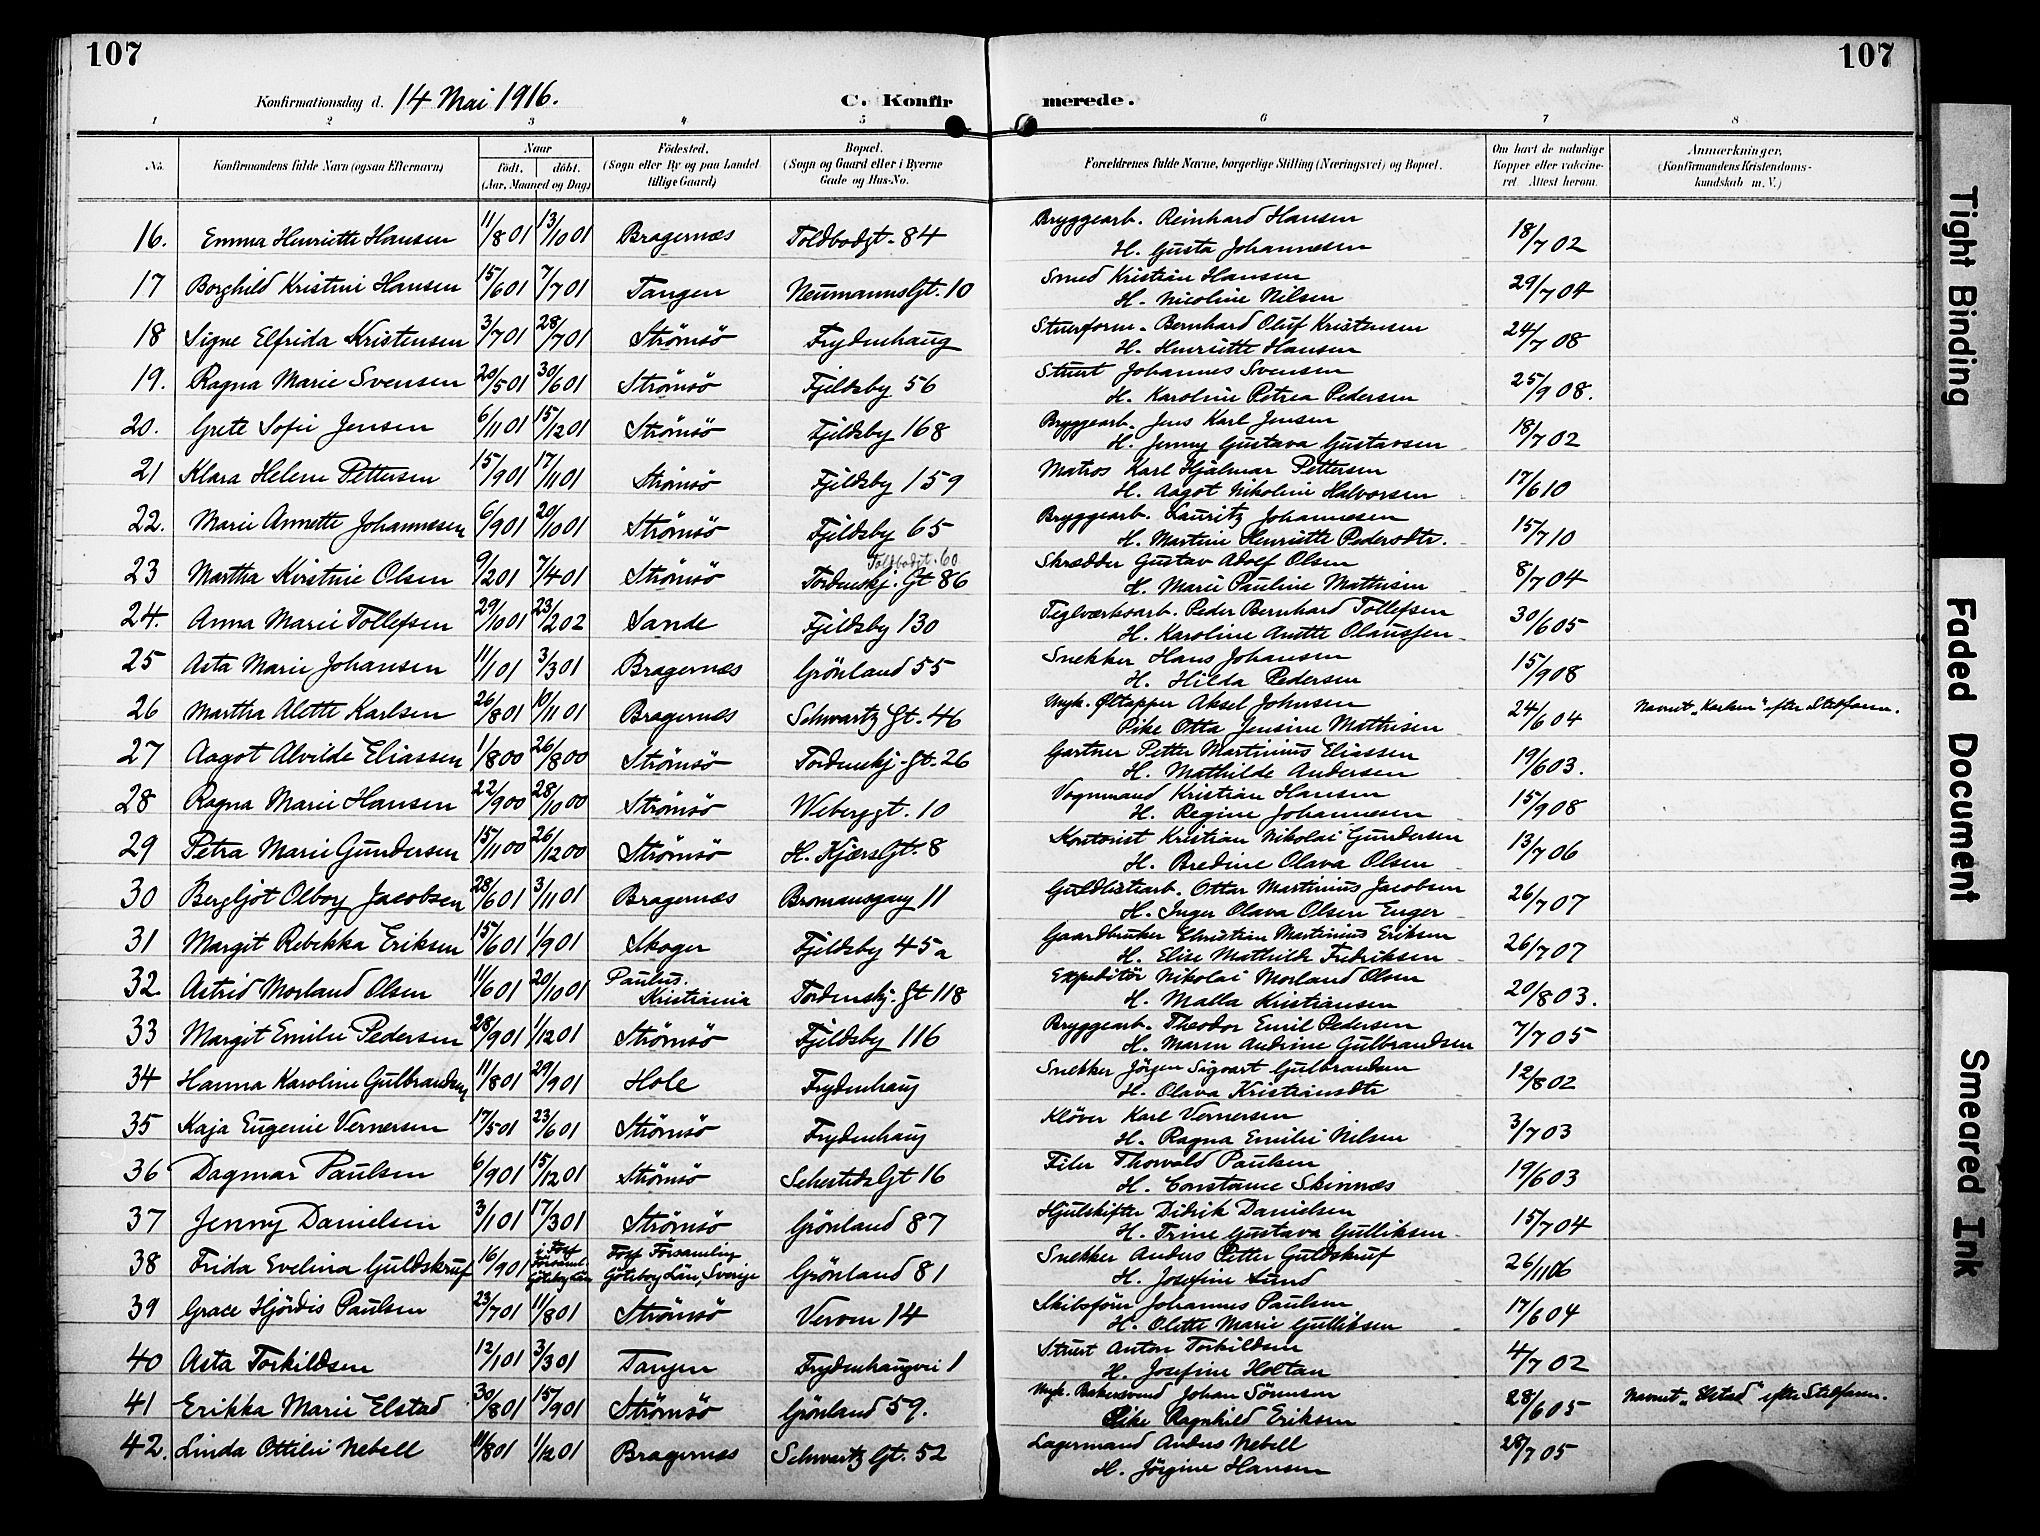 107
107
Konfirmationsdag d. 14 Mai 1916.
C. Konfirmerede.
1 2 3 4 5 6 7 8
No. Konfirmandens fulde Navn (ogsaa Efternavn) Naar født. døbt. (Aar, Maaned og Dag) Fødested. (Sogn eller By og paa Landet tillige Gaard) Bopæl. (Sogn og Gaard eller i Byerne Gade og Hus-No. Forældrenes fulde Navne, borgerlige Stilling (Næringsvei) og Bopæl. Om havt de naturlige Kopper eller vaccineret. Attest herom. Anmærkninger, (Konfirmandens Kristendomskundskab m. V.)
16. Emma Henriette Hansen 11/8 01 13/10 01 Bragernæs Toldbodgt. 84 Bryggearb. Reinhard Hansen H. Gusta Johannesen 18/7 02
17 Borghild Kristine Hansen 15/6 01 7/7 01 Tangen Neumanns Gt. 10 Smed Kristian Hansen H. Nicoline Nilsen 29/7 04
18 Signe Elfrida Kristensen 3/7 01 28/7 01 Strömsö Frydenhaug Stuerform. Bernhard Oluf Kristensen H. Henriette Hansen 24/7 08
19. Ragna Marie Svensen 20/5 01 30/6 01 Strömsö Fjeldsby 56 Stuert Johannes Svensen H. Karoline Petrea Pedersen 25/9 08.
20. Grete Sofie Jensen 6/11 01 15/12 01 Strömsö Fjeldsby 168 Bryggearb. Jens Karl Jensen H. Jenny Gustava Gustavsen 18/7 02
21 Klara Helene Pettersen 15/9 01 17/11 01 Strömsö Fjeldsby 159 Matros Karl Hjalmar Pettersen H. Aagot Nikoline Halvorsen 17/6 10
22. Marie Annette Johannesen 6/9 01 20/10 01 Strömsö Fjeldsby 65 Bryggearb. Lauritz Johannesen H. Martine Henriette Pedersdtr. 15/7 10
23 Martha Kirstine Olsen 9/2 01 7/4 01 Strömsö Toldbodgt. 60 Tordenskj. Gt 86 Skrædder Gustav Adolf Olsen H. Marie Pauline Mathisen 8/7 04
24. Anna Marie Tollefsen 29/10 01 23/2 02 Sande Fjeldsby 130 Teglværksarb. Peder Bernhard Tollefsen H. Karoline Anette Olaussen 30/6 05
25 Asta Marie Johansen 11/1 01 3/3 01 Bragernæs Grönland 55 Snekker Hans Johansen H. Hilda Pedersen 15/9 08
26 Martha Alette Karlsen 26/8 01 10/11 01 Bragernæs Schwartz Gt. 46 Ungk. Øltapper Aksel Johnsen Pike Otta Jensine Mathisen 24/6 04 Navnet „Karlsen" efter Stedfaren.
27 Aagot Alvilde Eliassen 1/8 00 26/8 00 Strömsö Tordenskj. Gt. 26 Gartner Petter Martinius Eliassen H. Mathilde Andersen 19/6 03.
28 Ragna Marie Hansen 22/9 00 28/10 00 Strömsö Webergt. 10 Vognmand Kristian Hansen H. Regine Johannesen 15/9 08
29 Petra Marie Gundersen 15/11 00 26/12 00 Strömsö H. Kjærs Gt. 8 Kontorist Kristian Nikolai Gundersen H. Bredine Olava Olsen 13/7 06
30 Bergljot Olbog Jacobsen 28/6 01 3/11 01 Bragernæs Bromansgang 11 Guldlistarb. Ottar Martinius Jacobsen H. Inger Olava Olsen Enger 26/7 07
31 Margit Rebekka Eriksen 15/6 01 1/9 01 Skoger Fjeldsby 45a Gaardbruker Christian Martinius Eriksen H. Elise Mathilde Fredriksen 26/7 07
32. Astrid Morland Olsen 11/6 01 20/10 01 Paulus. Kristiania Tordenskj. Gt 118 Expeditör Nikolai Morland Olsen H. Malla Kristiansen 20/8 03.
33 Margit Emilie Pedersen 28/9 01 1/12 01 Strömsö Fjeldsby 116 Bryggearb. Theodor Emil Pedersen H. Maren Andrine Gulbrandsen 7/7 05
34 Hanna Karoline Gulbrandsen 11/8 01 29/9 01 Hole Frydenhaug Snekker Jörgen Sigvart Gulbrandsen H. Olava Kristiansdtr 12/8 02
35 Kaja Eugenie Vernersen 17/5 01 23/6 01 Strömsö Frydenhaug Klöver Karl Vernersen H. Ragna Emilie Nilsen 3/7 03
36 Dagmar Paulsen 6/9 01 15/12 01 Strömsö Schesteds Gt 16 Filer Thorvald Paulsen H. Constance Skinnæs 19/6 03
37 Jenny Danielsen 3/1 01 17/3 01 Strömsö Grönland 87 Hjulskifter Didrik Danielsen H. Trine Gustava Gulliksen 15/7 04
38 Frida Evelina Guldskruf 16/9 01 Göteborg Län, Sverige Grönland 81 Snekker Anders Petter Guldskruf H. Josefine Lund 26/11 06
39 Grace Hjördis Paulsen 23/7 01 11/8 01 Strömsö Verven 14 Skibsförer Johannes Paulsen H. Olette Marie Gulliksen 17/6 04
40 Asta Torkildsen 12/1 01 3/3 01 Tangen Frydenhaugvei 1 Stuert Anton Torkildsen H. Josefine Holtan 4/7 02
41 Erikka Marie Elstad 30/8 01 15/9 01 Strömsö Grönland 59. Ungk. Bakersvend Johan Sörensen Pike Ragnhild Eriksen 28/6 05 Navnet „Elstad" efter Stedfaren.
42. Linda Ottilie Nebell 11/8 01 1/12 01 Bragernæs Schwartz Gt. 52 Lagermand Anders Nebell H. Jörgine Hansen 28/7 05
Tight Binding
Faded Document
Smeared Ink